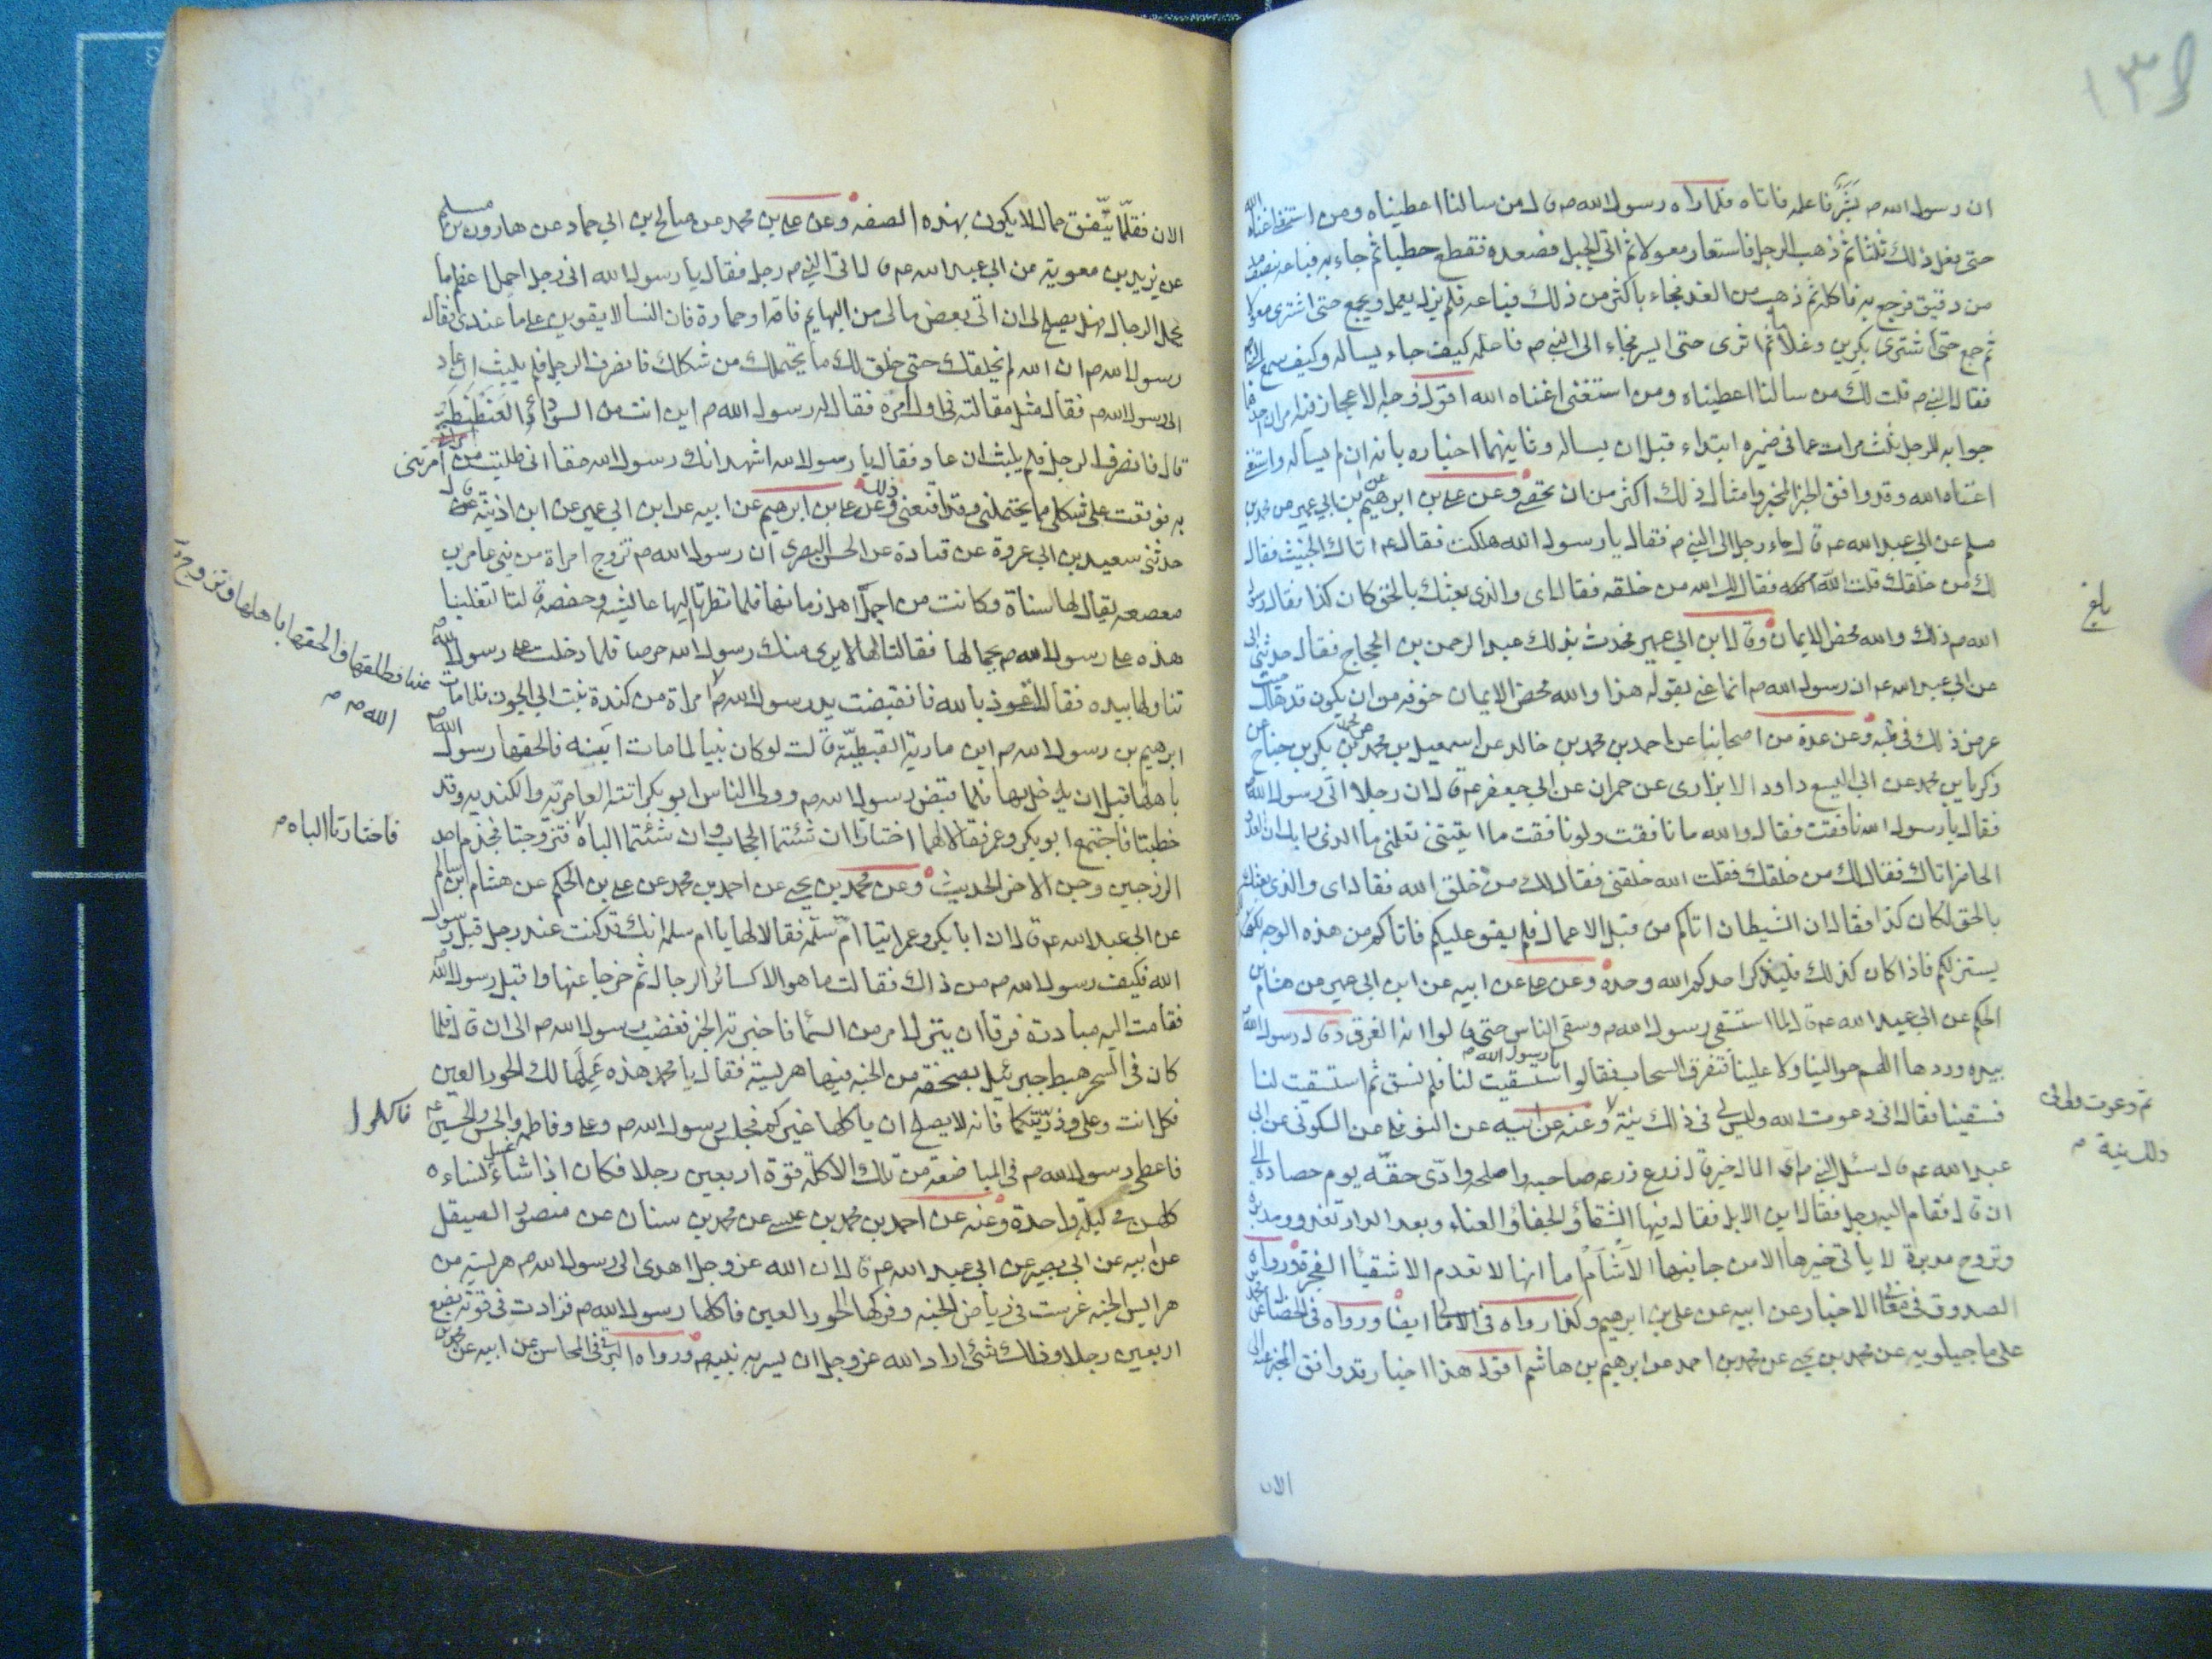 ١٣٥
ان رسول الله ص بشر فاعلمه فاتاه فلما راه رسول الله ص قال من سالنا اعطيناه ومن استغنى اغناه الله
حتى فعل ذلك ثلثا ثم ذهب الرجل فاستعار معولا ثم اتى الجبل فصعده فقطع حطبا ثم جاء به فباعه بنصف مد
من دقيق فرجع به فاكله ثم ذهب من الغد فجاء باكثر من ذلك فباعه فلم يزل يعمل ويجمع حتى اشترى معولا
ثم جمع حتى اشترى بكرين وغلاما ثم اثرى حتى ايسر فجاء الى النبي ص فاعلمه كيف جاء يساله وكيف سمع النبي
فقال النبي ص قلت لك من سالنا اعطيناه ومن استغنى اغناه الله اقول وجه الاعجاز فيه امران احدهما
جوابه للرجل ثلث مرات عما في ضميره ابتداء قبل ان يساله وثانيهما اخباره بانه ان لم يساله واستغنى
اغناه الله وقد وافق الخبر المخبر وامثال ذلك اكثر من ان تحصى وعن علي بن ابرهيم عن ابن ابي عمير عن محمد بن
مسلم عن ابي عبد الله ع قال جاء رجل الى النبي ص فقال يا رسول الله هلكت فقال ع اتاك الخبيث فقال
لك من خلقك قلت الله فقال لك الله من خلقه فقال اى والذى بعثك بالحق كان كذا فقال رسول
الله ص ذلك والله محض الايمان وقال ابن ابي عمير فحدثت بذلك عبد الرحمن بن الحجاج فقال حدثنى ابى
عن ابي عبد الله ع ان رسول الله ص انما عنى بقوله هذا والله محض الايمان خوفه من ان يكون قد هلك حيث
عرض ذلك في قلبه وعن عدة من اصحابنا عن احمد بن محمد بن خالد عن اسمعيل بن محمد عن محمد بن بكر بن جناح عن
زكريا بن محمد عن ابي اليسع داود الابزارى عن حمران عن ابي جعفر ع قال ان رجلا اتى رسول الله ص
فقال يا رسول الله نافقت فقال والله ما نافقت ولو نافقت ما اتيتنى تعلمنى ما الذى رابك ان العدو
الحاضر اتاك فقال لك من خلقك فقلت الله خلقنى فقال لك من خلق الله فقال اى والذى بعثك
بالحق لكان كذا فقال ان الشيطان اتاكم من قبل الاعمال فلم يقو عليكم فاتاكم من هذه الوجه لكى
يستزلكم فاذا كان كذلك فليذكر احدكم الله وحده وعن علي عن ابيه عن ابن ابي عمير عن هشام بن
الحكم عن ابي عبد الله ع قال لما استسقى رسول الله ص وسقى الناس حتى قالوا انه الغرق وقال رسول الله ص
بيده وردها اللهم حوالينا ولا علينا فتفرق السحاب فقالوا يا رسول الله ص استسقيت لنا فلم نسق ثم استسقيت لنا
فسقينا فقال انى دعوت الله وليس لى في ذلك نية وعنه عن ابيه عن النوفلي عن السكونى عن ابى
عبد الله ع قال سئل النبي ص اى المال خير قال زرع زرعه صاحبه واصلحه وادى حقه يوم حصاده الى
ان قال فقام اليه رجل فقال اين الابل فقال فيها الشقاء والجفاء والعناء وبعد الدار تغدو مدبرة
وتروح مدبرة لا ياتى خيرها الا من جانبها الاشام اما انها لا تعدم الاشقياء الفجرة ورواه
الصدوق في معانى الاخبار عن ابيه عن على بن ابرهيم وكذا رواه في الامالى ايضا ورواه في الخصال عن محمد بن
على ماجيلويه عن محمد بن يحيى عن محمد بن احمد عن ابرهيم بن هاشم اقول هذا اخبار قد وافق المخبر عنه الى
بلغ
ثم دعوت ولى فى
ذلك نية م
الان
الان فقلما يتفق جمال لا يكون بهذه الصفه وعن علي بن محمد عن صالح بن ابي حماد عن هارون بن مسلم
عن يزيد بن معوية عن ابي عبد الله ع قال اتى النبي ص رجل فقال يا رسول الله انى رجل احمل اعظم ما
يحمل الرجال فهل يصلح لى ان اتى بعض مالى من البهايم ناقة او حمارة فان النسا لا يقوين على ما عندى فقال
رسول الله ص ان الله لم يخلقك حتى خلق لك ما يحتملك من شكلك فانصرف الرجل فلم يلبث ان عاد
الى رسول الله ص فقال مثل مقالته في اول مرة فقال له رسول الله ص اين انت من السوداء العنطنطة
قال فانصرف الرجل فلم يلبث ان عاد فقال يا رسول الله اشهد انك رسول الله حقا انى طلبت من امرتنى
به فوقعت على شكلى مما يحتملنى وقد اقنعنى ذلك وعن علي بن ابرهيم عن ابيه عن ابن ابي عمير عن ابن اذينة قال
حدثنى سعيد بن ابي عروة عن قتادة عن الحسن البصرى ان رسول الله ص تزوج امراة من بنى عامر بن
صعصعه يقال لها سناة وكانت من اجمل اهل زمانها فلما نظرتا اليها عائشه وحفصه قالتا لتغلبنا
هذه على رسول الله ص بجمالها فقالتا لها لا يرى منك رسول الله حرصا فلما دخلت على رسول الله ص
تناولها بيده فقالت اعوذ بالله فانقبضت يد رسول الله ص امراة من كندة بنت ابي الجون فلما مات
ابرهيم بن رسول الله ص ابن مارية القبطية قالت لو كان نبيا لما مات ابنه فالحقها رسول الله ص
باهلها قبل ان يدخل بها فلما قبض رسول الله ص وولى الناس ابو بكر اتته العامرية والكنديه وقد
خطبتا فاجتمع ابو بكر وعمر فقالا لهما اختارا ان شئتما الحجاب وان شئتما الباه فتزوجتا فجذم احد
الزوجين وجن الاخر الحديث وعن محمد بن يحيى عن احمد بن محمد عن علي بن الحكم عن هشام بن سالم
عن ابي عبد الله ع قال ان ابا بكر وعمر اتيا ام سلمه فقالا لها يا ام سلمه انك قد كنت عند رجل قبل رسول
الله فكيف رسول الله ص من ذاك فقالت ما هو الا كسائر الرجال ثم خرجا عنها واقبل رسول الله ص
فقامت اليه مبادرة فرقا ان ينزل امر من السما فاخبرته الخبر فغضب رسول الله ص الى ان قال فلما
كان في السحر هبط جبرئيل بصحفة من الجنه فيها هريسة فقال يا محمد هذه عملها لك الحور العين
فكل انت وعلى وذريتكما فانه لا يصلح ان ياكلها غيركم فجلس رسول الله ص وعلى وفاطمه والحسن والحسين ع
فاعطى رسول الله ص في المباضعة من تلك الاكلة قوة اربعين رجلا فكان اذا شاء غشى نساءه
كلهن في ليلة واحدة وعنه عن احمد بن محمد بن عيسى عن محمد بن سنان عن منصور الصيقل
عن ابيه عن ابي بصير عن ابي عبد الله ع قال ان الله عز وجل اهدى الى رسول الله ص هريسة من
هرايس الجنه غرست في رياض الجنه وفركها الحور العين فاكلها رسول الله ص فزادت في قوته بضع
اربعين رجلا وذلك شئ اراد الله عز وجل ان يسر به نبيه ص ورواه البرقى في المحاسن عن ابيه عن محمد بن
عنها فطلقها والحقها باهلها وتزوج رسول
الله ص م
فاختارتا الباه م
فاكلوا